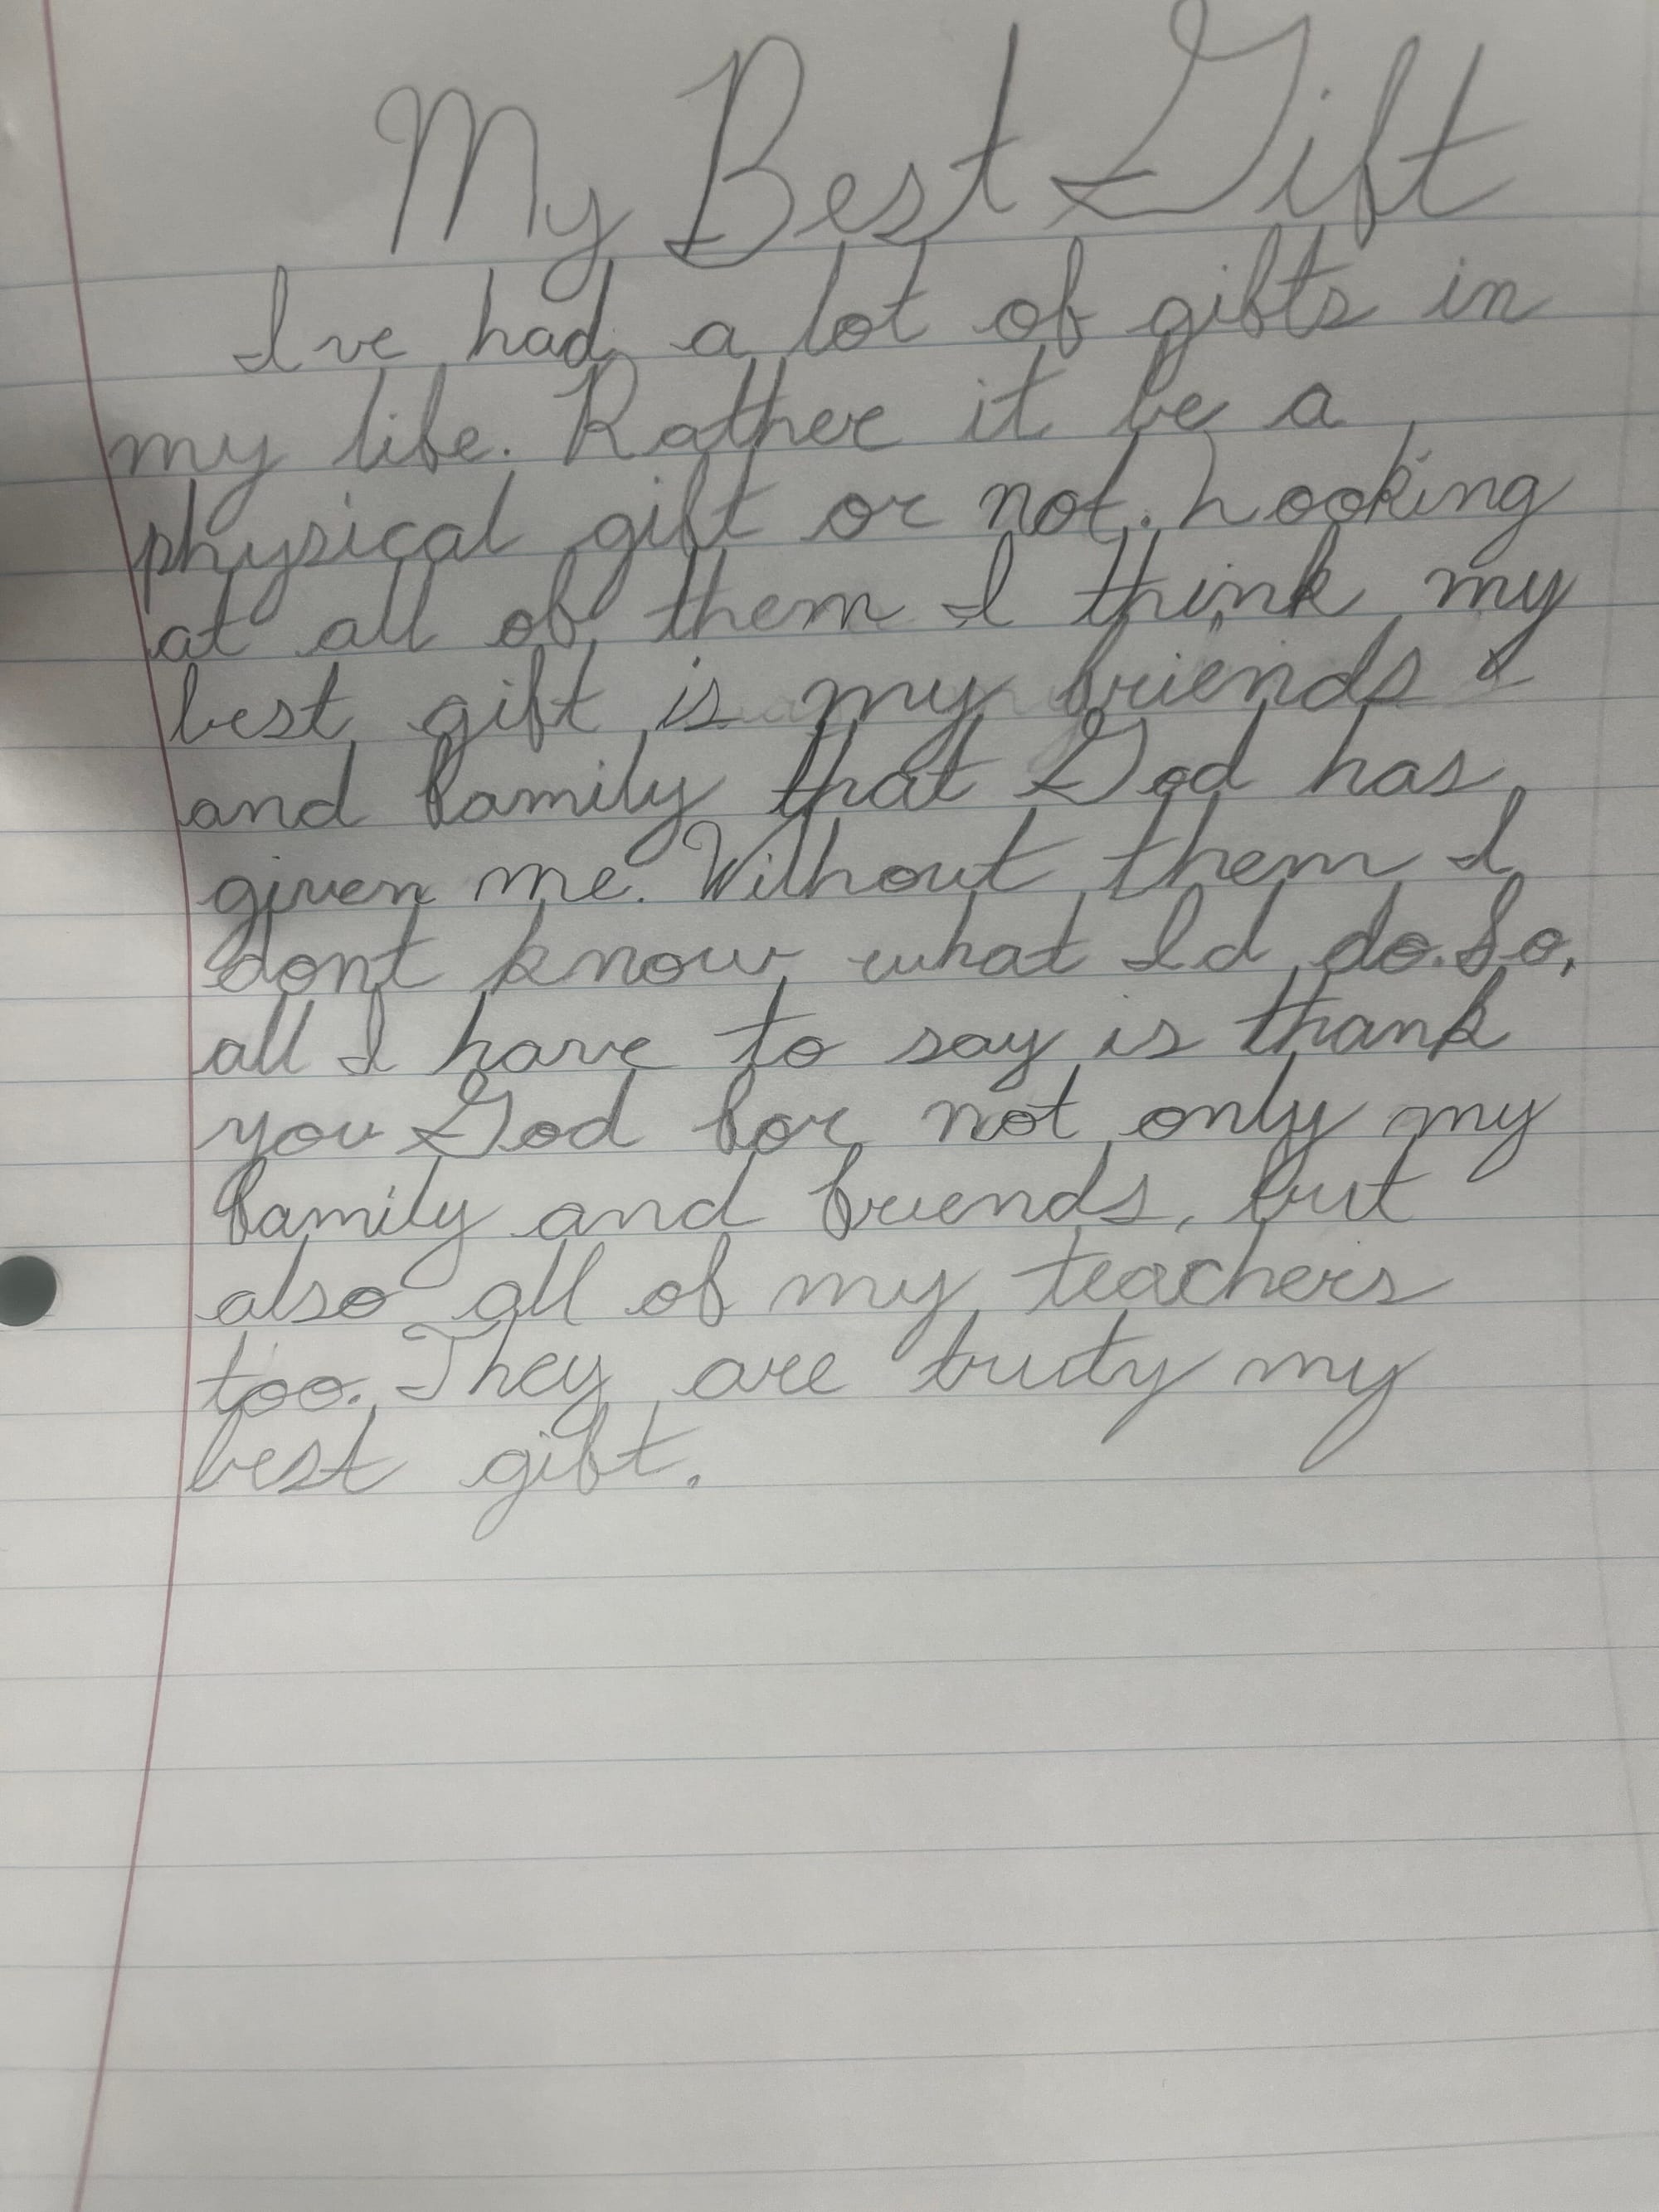 My Best Gift
Ive had a lot of gifts in
my life. Rather it be a
physical gift or not. Looking
at all of them I think my
best gift is my friends
and family that God has
given me. Without them I
dont know what Id do. So,
all I have to say is thank
you God for not only my
family and friends, but
also all of my teachers
too. They are truly my
best gift.